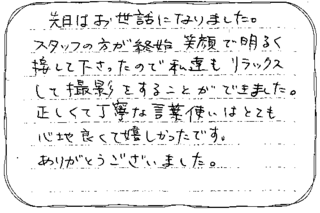 先日はお世話になりました。
スタッフの方が終始笑顔で明るく
接して下さったので私達もリラックス
して撮影をすることができました。
正しくて丁寧な言葉使いはとても
心地良くて嬉しかったです。
ありがとうございました。